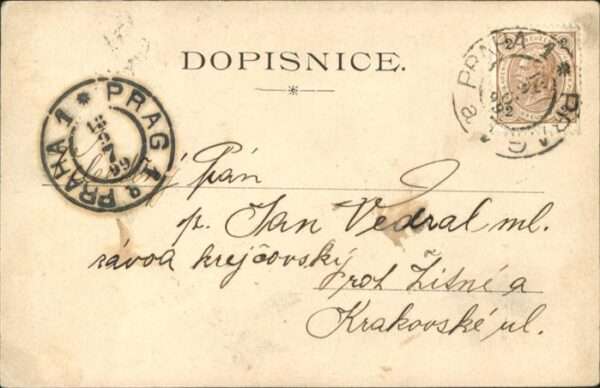 DOPISNICE.
PRAG 1 * PRAHA 1
18
7
99
PRAHA 1 *
2 2
Pán
p. Jan Vedral ml.
závod krejčovský
roh Žitné a
Krakovské ul.